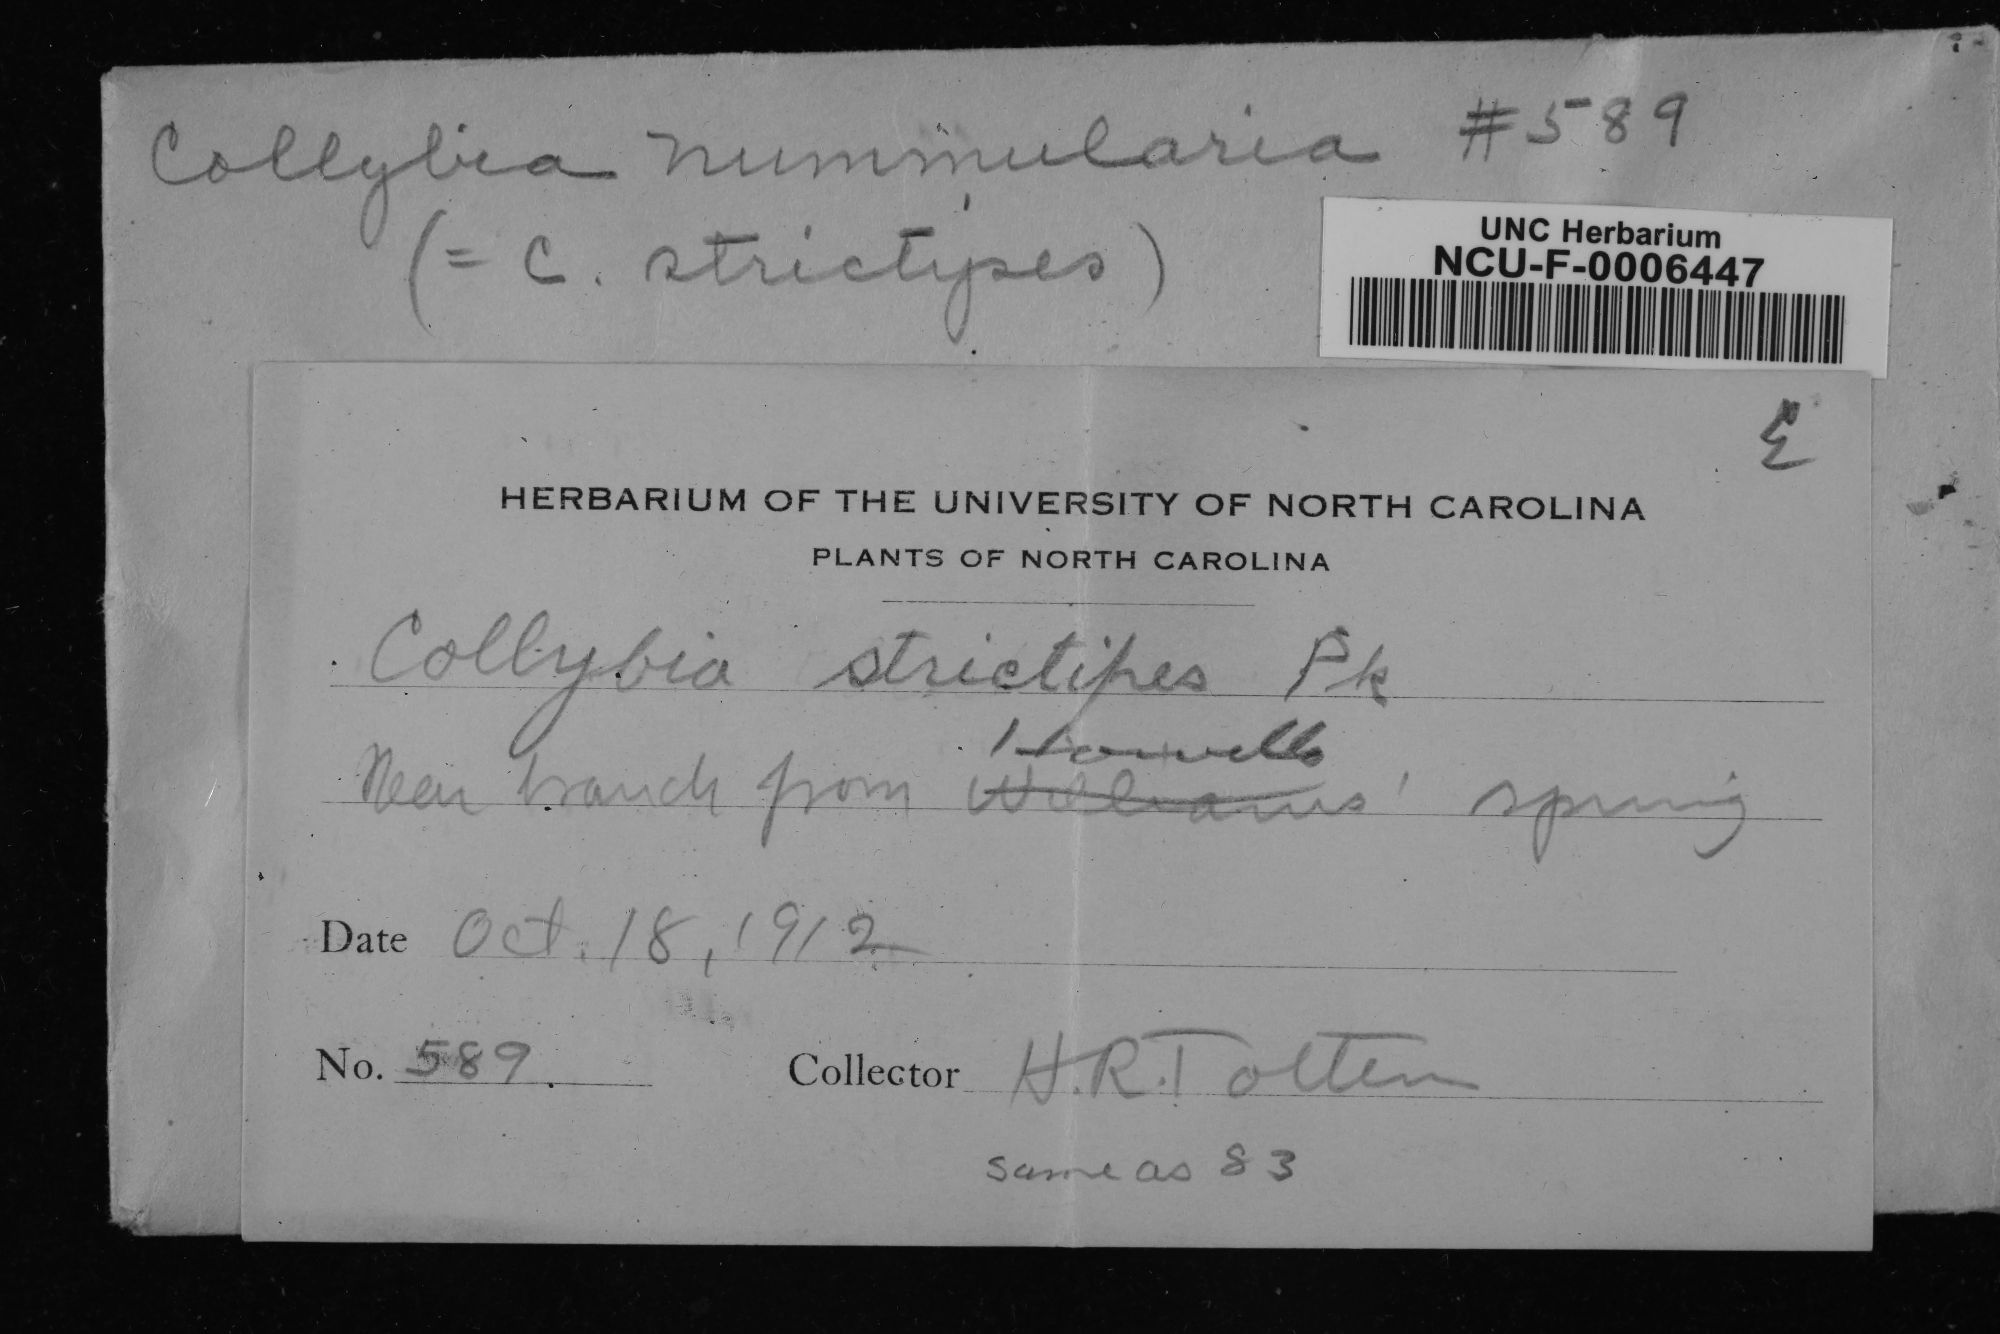 Collybia nummularia #589
(= C. strictypes)
UNC Herbarium
NCU-F-0006447
E
HERBARIUM OF THE UNIVERSITY OF NORTH CAROLINA
PLANTS OF NORTH CAROLINA
Collybia strictipes Pk
Howells
Near branch from Williams' spring
Date Oct. 18, 1912
No. 589. Collector H.R. Totten
same as 83